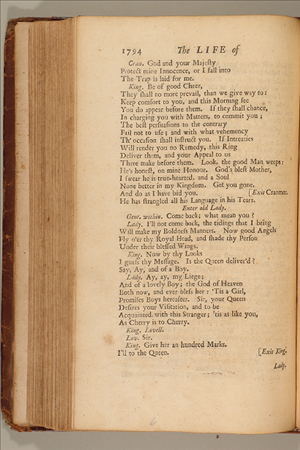 1794 The LIFE of
Cran. God and your Majesty
Protect mine Innocence, or I fall into
The Trap is laid for me.
King. Be of good Cheer,
They shall no more prevail, than we give way to:
Keep comfort to you, and this Morning see
You do appear before them. If they shall chance,
In charging you with Matters, to commit you;
The best perswasions to the contrary
Fail not to use; and with what vehemency
Th' occasion shall instruct you. If Intreaties
Will render you no Remedy, this Ring
Deliver them, and your Appeal to us
There make before them. Look, the good Man weeps:
He's honest, on mine Honour. God's blest Mother,
I swear he is true-hearted, and a Soul
None better in my Kingdom. Get you gone,
And do as I have bid you. [Exit Cranmer.
He has strangled all his Language in his Tears.
Enter old Lady.
Gent. within. Come back; what mean you?
Lady. I'll not come back, the tidings that I bring
Will make my Boldness Manners. Now good Angels
Fly o'er thy Royal Head, and shade thy Person
Under their blessed Wings.
King. Now by thy Looks
I guess thy Message. Is the Queen deliver'd?
Say, Ay, and of a Boy.
Lady. Ay, ay, my Liege;
And of a lovely Boy; the God of Heaven
Both now, and ever bless her: 'Tis a Girl,
Promises Boys hereafter. Sir, your Queen
Desires your Visitation, and to be
Acquainted with this Stranger; 'tis as like you,
As Cherry is to Cherry.
King. Lovell.
Lov. Sir.
King. Give her an hundred Marks.
I'll to the Queen. [Exit King.
Lady.